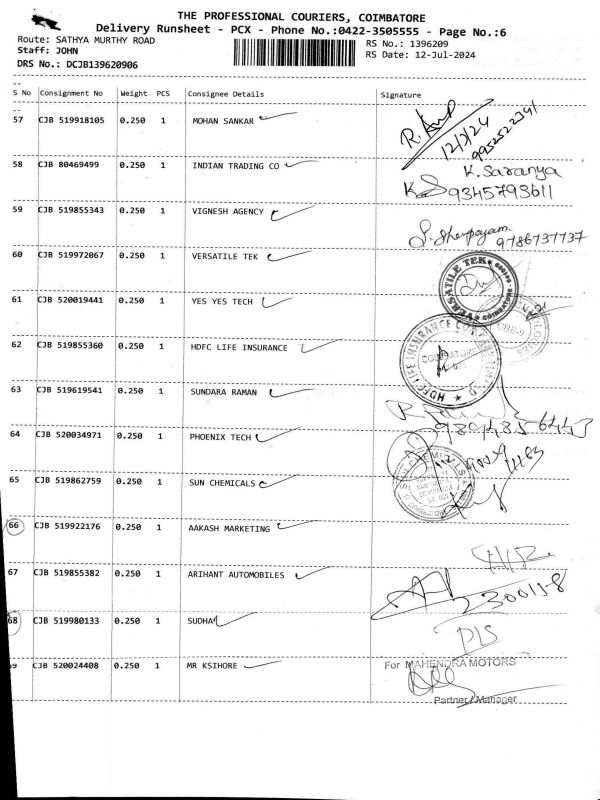 THE PROFESSIONAL COURIERS, COIMBATORE
Delivery Runsheet - PCX - Phone No.:0422-3505555 - Page No.:6
Route: SATHYA MURTHY ROAD
RS No.: 1396209
Staff: JOHN
RS Date: 12-Jul-2024
DRS No.: DCJB139620906
S No Consignment No Weight PCS Consignee Details Signature
57 CJB 519918105 0.250 1 MOHAN SANKAR
12/7/24
9952522391
58 CJB 80469499 0.250 1 INDIAN TRADING CO
K. Saranya
9345793611
59 CJB 519855343 0.250 1 VIGNESH AGENCY
9786737737
60 CJB 519972067 0.250 1 VERSATILE TEK
VERSATILE TEK
COIMBATORE
61 CJB 520019441 0.250 1 YES YES TECH
CBE-9
62 CJB 519855360 0.250 1 HDFC LIFE INSURANCE
HDFC LIFE INSURANCE COMPANY LIMITED
COIMBATORE
63 CJB 519619541 0.250 1 SUNDARA RAMAN
64 CJB 520034971 0.250 1 PHOENIX TECH
65 CJB 519862759 0.250 1 SUN CHEMICALS
SUN CHEMICALS
66 CJB 519922176 0.250 1 AAKASH MARKETING
67 CJB 519855382 0.250 1 ARIHANT AUTOMOBILES
68 CJB 519980133 0.250 1 SUDHA
D/S
69 CJB 520024408 0.250 1 MR KSIHORE
For MAHENDRA MOTORS
Partner / Manager